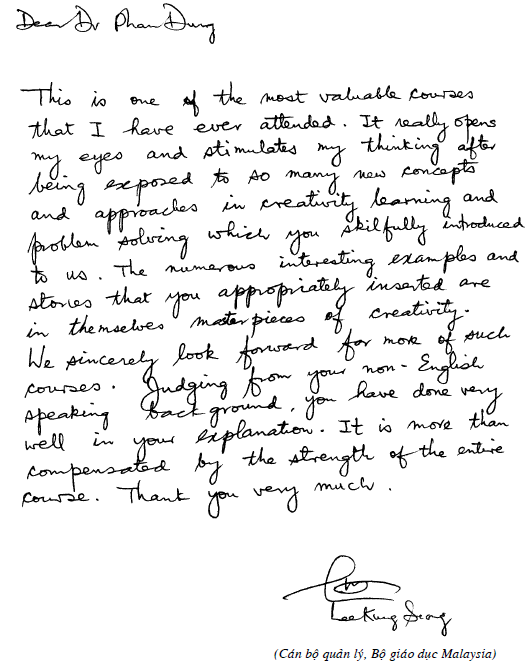 Dear Dr Phan Dung
This is one of the most valuable courses
that I have ever attended. It really opens
my eyes and stimulates my thinking after
being exposed to so many new concepts
and approaches in creativity learning and
problem solving which you skilfully introduced
to us. The numerous interesting examples and
stories that you appropriately inserted are
in themselves materpieces of creativity.
We sincerely look forward for more of such
courses. Judging from your non-English
speaking background, you have done very
well in your explanation. It is more than
compensated by the strength of the entire
course. Thank you very much.
Lee Kung Seong
(Cán bộ quản lý, Bộ giáo dục Malaysia)